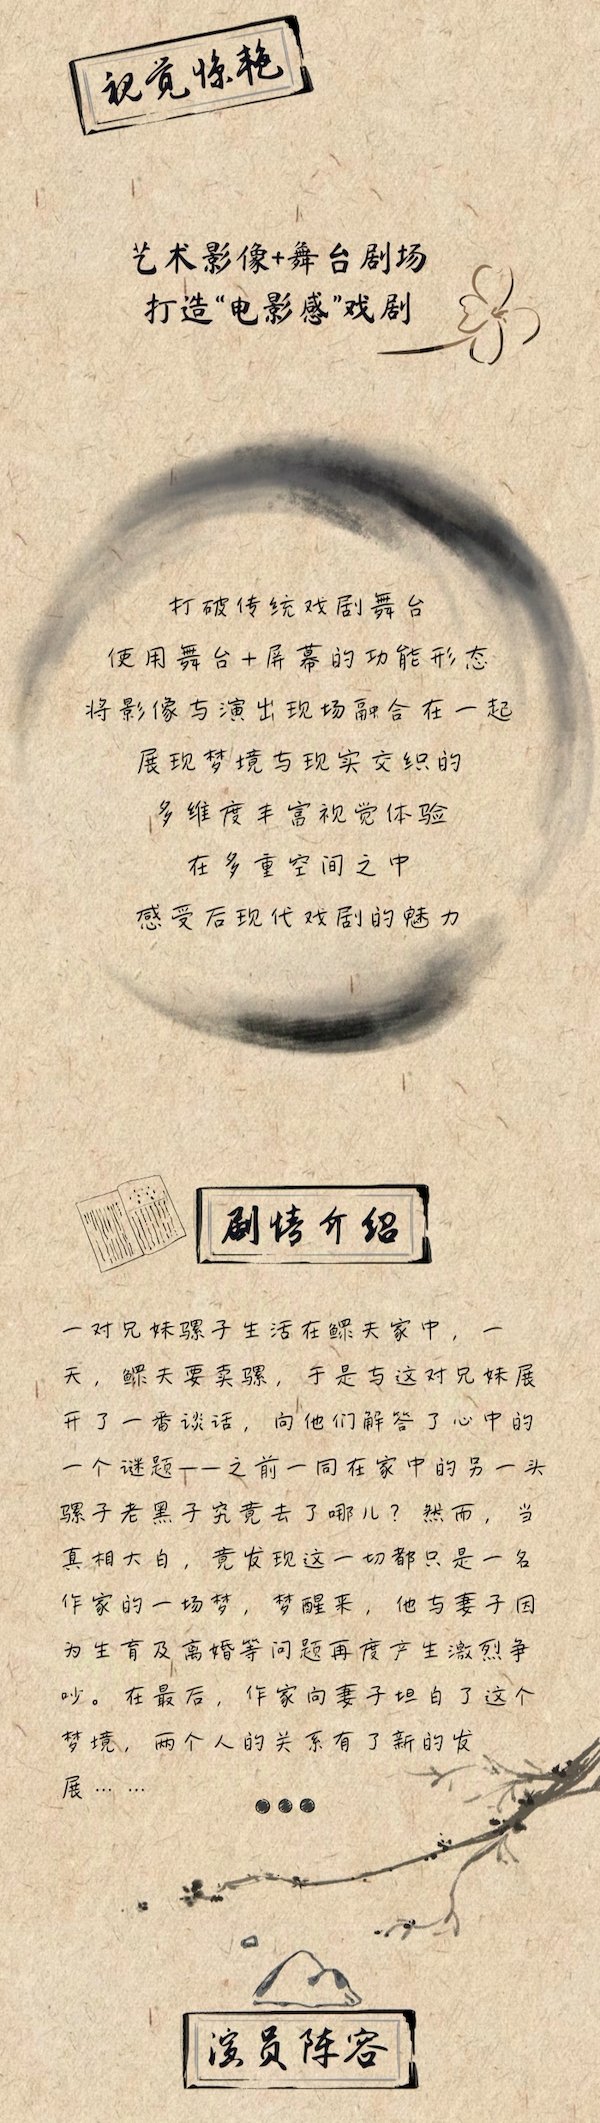 视觉惊艳
艺术影像+舞台剧场
打造“电影感”戏剧
打破传统戏剧舞台
使用舞台+屏幕的功能形态
将影像与演出现场融合在一起
展现梦境与现实交织的
多维度丰富视觉体验
在多重空间之中
感受后现代戏剧的魅力
剧情介绍
一对兄妹骡子生活在鳏夫家中，一
天，鳏夫要卖骡，于是与这对兄妹展
开了一番谈话，向他们解答了心中的
一个谜题——之前一同在家中的另一头
骡子老黑子究竟去了哪儿？然而，当
真相大白，竟发现这一切都只是一名
作家的一场梦，梦醒来，他与妻子因
为生育及离婚等问题再度产生激烈争
吵。在最后，作家向妻子坦白了这个
梦境，两个人的关系有了新的发
展……
演员阵容